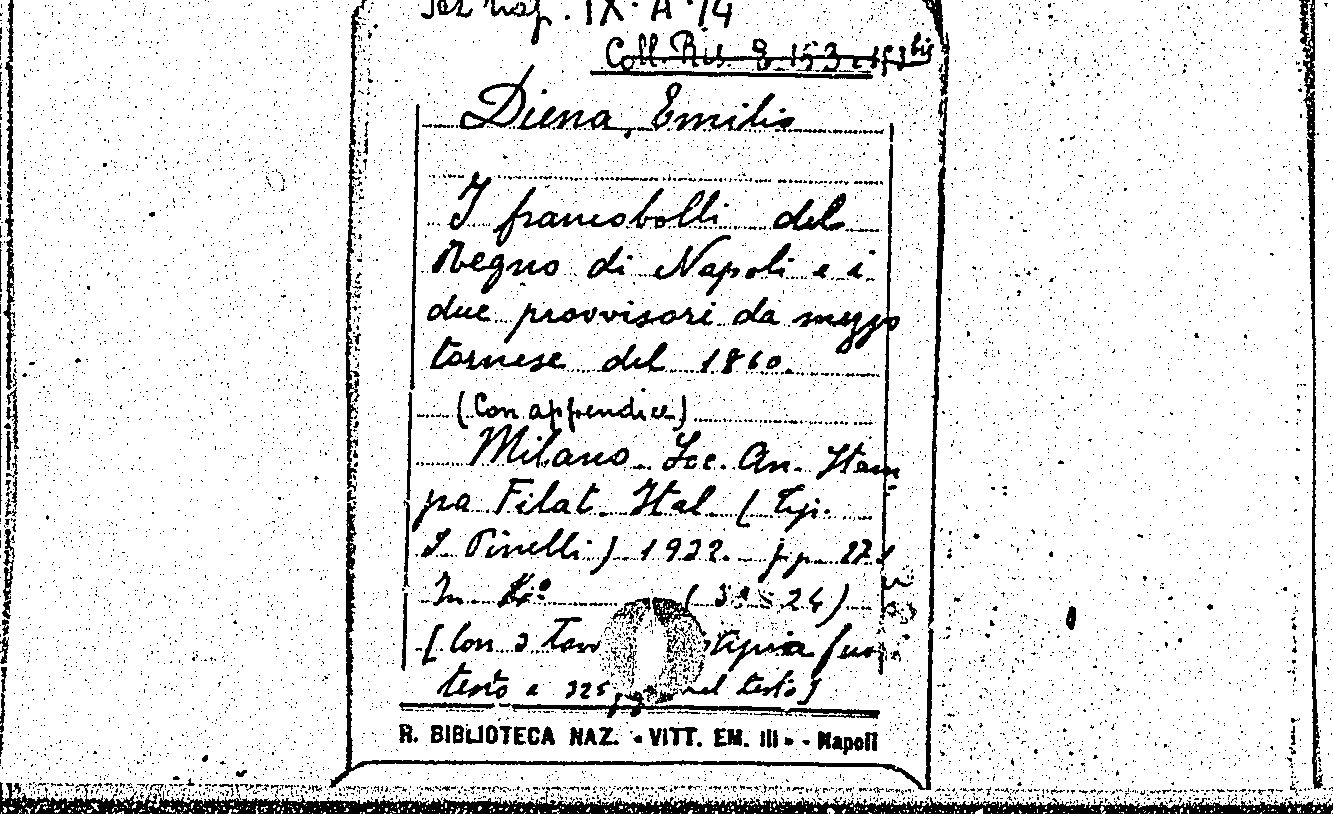 Sez Nap. IX. A. 14
Coll. Ris. 8 153
Diena, Emilio
I francobolli del
Regno di Napoli e i
due provvisori da mezzo
tornese del 1860.
(Con appendice)
Milano. Soc. An. Stam
pa Filat. Ital. (Tip.
I. Pinelli) 1922. pp. 271
In
[Con 2 Tav
testo e 325 nel testo]
R. BIBLIOTECA NAZ. « VITT. EM. III » - Napoli